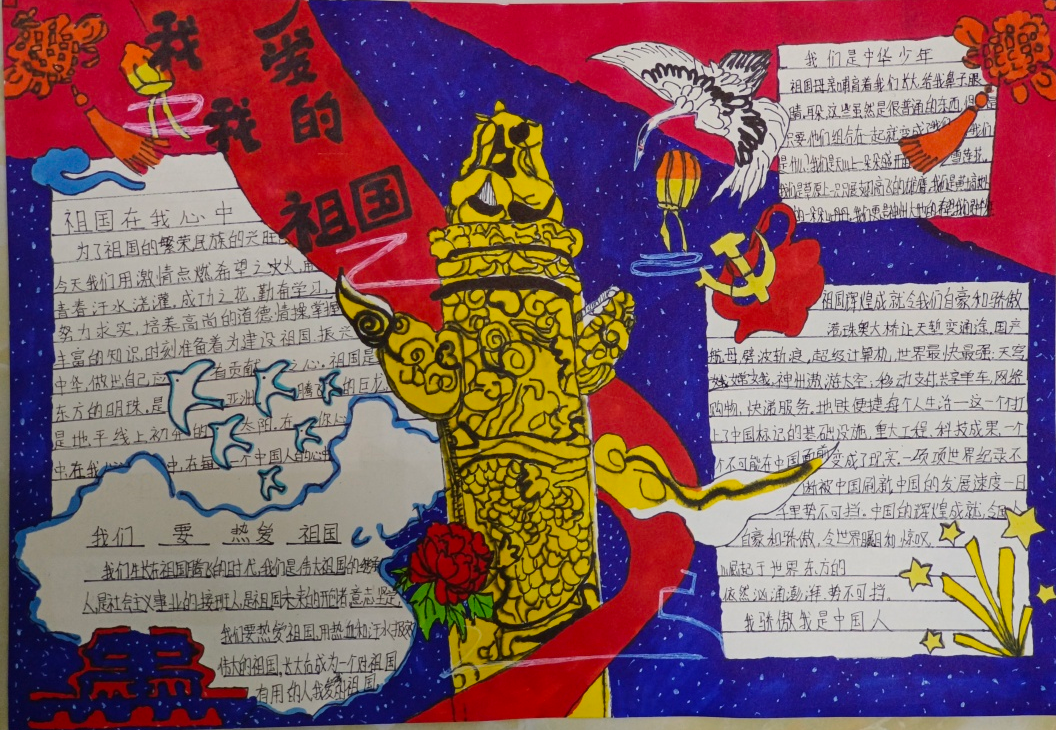 我爱我的祖国
祖国在我心中
为了祖国的繁荣民族的兴旺
今天我们用激情点燃希望之火,用
青春汗水浇灌,成功之花,勤奋学习
努力求实,培养高尚的道德情操掌握
丰富的知识,时刻准备着为建设祖国,振兴
中华,做出自己应有贡献 心,祖国是
东方的明珠,是亚洲腾飞的巨龙
是地平线上初升的太阳,在你心
中,在我心中,在每一个中国人的心中
我们 要 热爱 祖国
我们生长在祖国腾飞的时代,我们是伟大祖国的
人,是社会主义事业的接班人,是祖国未来的 意志坚定,
我们要热爱祖国,用热血和汗水报效
伟大的祖国,长大后成为一个对祖国
有用的人我爱的祖国
我们是中华少年
祖国母亲哺育着我们长大,给我鼻子眼
睛,耳朵,这些虽然是很普通的东西,但是
只要他们组合在一起就变成了 我们
是什么?我们是天山上一朵朵盛开的 雪莲花,
我们是草原上一只只展翅高飞的雄鹰,我们是
祖国辉煌成就令我们自豪和骄傲
港珠澳大桥让天堑变通途,国产
航母劈波斩浪,超级计算机,世界最快最强:天宫
嫦娥,神州遨游太空,移动支付共享单车,网络
购物,快递服务,地铁便捷每个人生活一这一个打
上了中国标记的基础设施,重大工程,科技成果,一个
个不可能在中国面前变成了现实.一项项世界纪录不
断被中国刷新中国的发展速度一日
千里势不可挡.中国的辉煌成就,令国
自豪和骄傲,令世界瞩目和惊叹.
崛起于世界东方的
依然汹涌澎湃,势不可挡.
我骄傲我是中国人